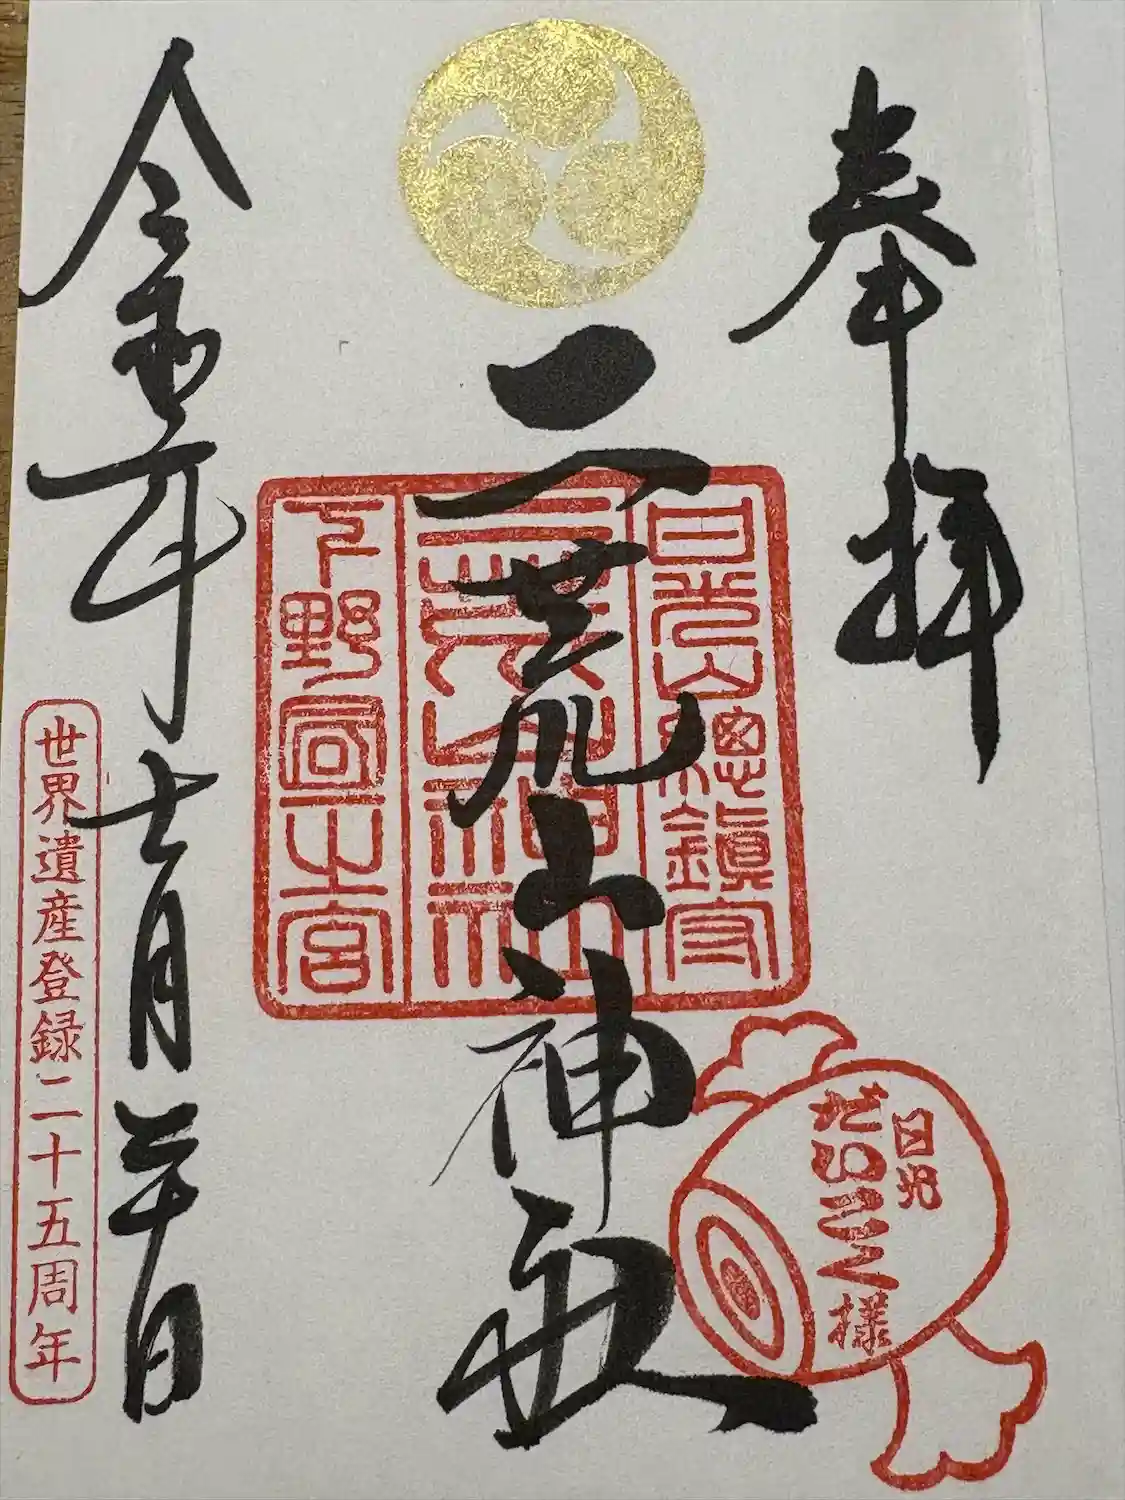 奉拝
日光山總鎮守
二荒山神社
下野國一之宮
二荒山神社
日光
だいこく様
令和六年十一月二十日
世界遺産登録二十五周年